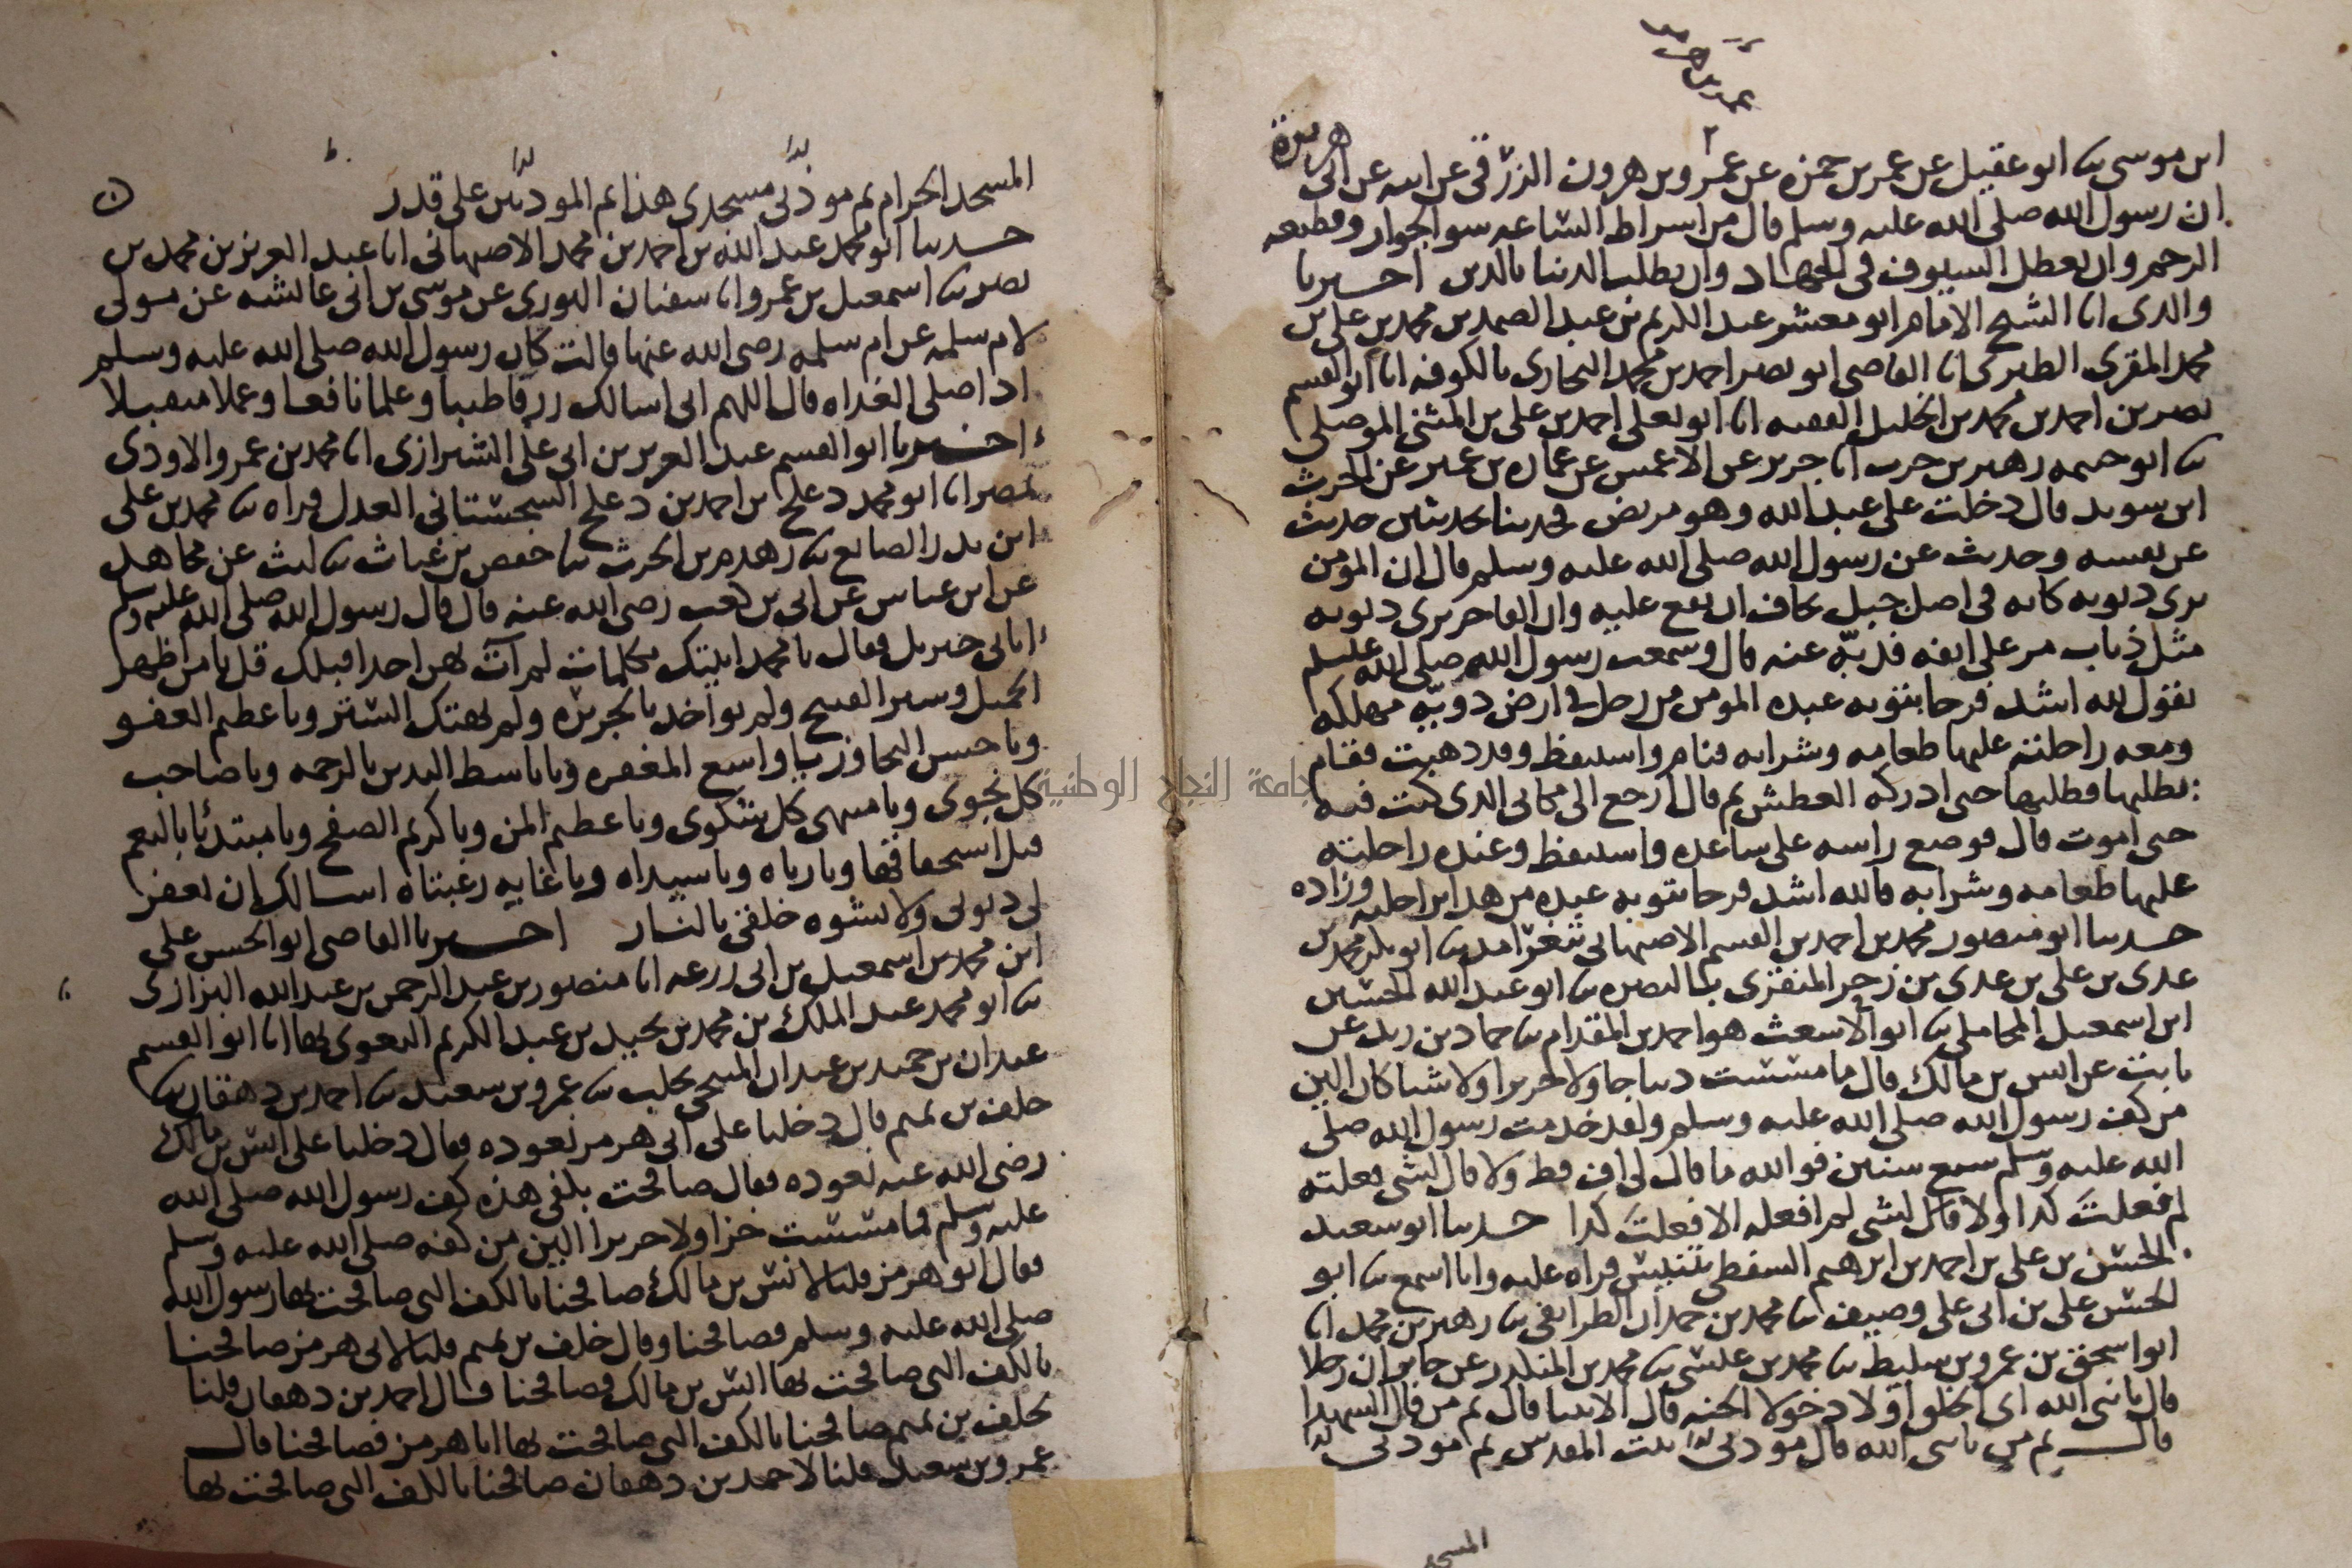 عمر بن حمزه
٢
ابن موسى ثنا ابو عقيل عن عمر بن حمزه عن عمرو بن هرون الزرقى عن ابيه عن ابى هريرة
ان رسول الله صلى الله عليه وسلم قال من اشراط الساعه سوا الجوار وقطيعه
الرحم وان يعطل السيوف فى الجهاد وان يطلب الدنيا بالدين اخبرنا
والدى انا الشيخ الامام ابو معشر عبد الكريم بن عبد الصمد بن محمد بن على بن
محمد المقرى الطبرى انا القاضى ابو نصر احمد بن محمد البخارى بالكوفه انا ابو القسم
نصر بن احمد بن محمد بن الخليل الفقيه انا ابو يعلى احمد بن على بن المثنى الموصلى
ثنا ابو خيثمه زهير بن حرب انا جرير عن الاعمش عن عماره بن عمير عن الحرث
ابن سويد قال دخلت على عبد الله وهو مريض فحدثنا بحديثين حديث
عن نفسه وحديث عن رسول الله صلى الله عليه وسلم قال ان المومن
يرى ذنوبه كانه فى اصل جبل يخاف ان يقع عليه وان الفاجر يرى ذنوبه
مثل ذباب مر على انفه فذبّه عنه قال وسمعت رسول الله صلى الله عليه وسلم
يقول لله اشد فرحا بتوبه عبده المومن من رجل فى ارض دويّه مهلكه
ومعه راحلته عليها طعامه وشرابه فنام واستيقظ وقد ذهبت فقام
يطلبها فطلبها حتى ادركه العطش ثم قال ارجع الى مكانى الذى كنت فيه
حتى اموت قال فوضع راسه على ساعده واستيقظ وعنده راحلته
عليها طعامه وشرابه فالله اشد فرحا بتوبه عبده من هذا براحلته وزاده
حدثنا ابو منصور محمد بن احمد بن القسم الاصبهانى بثغر امد ثنا ابو بكر محمد بن
عدى بن على بن عدى بن زحر المنقرى بالبصره ثنا ابو عبد الله الحسين
ابن اسمعيل المحاملى ثنا ابو الاشعث هو احمد بن المقدام ثنا حماد بن زيد عن
ثابت عن انس بن مالك قال ما مسست ديباجا ولا حريرا ولا شيا كان الين
من كف رسول الله صلى الله عليه وسلم ولقد خدمت رسول الله صلى
الله عليه وسلم سبع سنين فوالله ما قال لى اف قط ولا قال لشى فعلته
لم فعلت كذا ولا قال لشى لم افعله الا فعلت كذا حدثنا ابو سعيد
الحسن بن على بن احمد بن ابرهيم السقطى بتنيس قراه عليه وانا اسمع ثنا ابو
الحسن على بن ابى على وصيف ثنا محمد بن حمدان الطرايفى ثنا زهير بن محمد انا
ابو اسحق بن عمرو بن سليط ثنا محمد بن عيسى ثنا محمد بن المنكدر عن جابر ان رجلا
قال يا نبى الله اى الخلق اولا دخولا الجنه قال الانبيا قال ثم من قال الشهدا
قال ثم من يا نبى الله قال موذنى بيت المقدس ثم موذنى
المسجد
المسجد الحرام ثم موذنى مسجدى هذا ثم الموذنين على قدر
حدثنا ابو محمد عبد الله بن احمد بن محمد الاصبهانى انا عبد العزيز بن محمد بن
نصر ثنا اسمعيل بن عمرو انا سفيان الثورى عن موسى بن ابى عائشه عن مولى
لام سلمه عن ام سلمه رضى الله عنها قالت كان رسول الله صلى الله عليه وسلم
اذا صلى الغداه قال اللهم انى اسالك رزقا طيبا وعلما نافعا وعملا متقبلا
اخبرنا ابو القسم عبد العزيز بن ابى على الشيرازى انا محمد بن عمرو الاودى
بمصر انا ابو محمد دعلج بن احمد بن دعلج السجستانى العدل قراه ثنا محمد بن على
ابن بدر الصايع ثنا زهدم بن الحرث ثنا حفص بن غياث ثنا ليث عن مجاهد
عن ابن عباس عن ابى بن كعب رضى الله عنه قال قال رسول الله صلى الله عليه وسلم
اتانى جبريل فقال يا محمد اتيتك بكلمات لم آت بهن احدا قبلك قل يا من اظهر
الجميل وستر القبيح ولم يواخذ بالجريره ولم يهتك الستر ويا عظيم العفو
ويا حسن التجاوز يا واسع المغفره ويا باسط اليدين بالرحمه ويا صاحب
كل نجوى ويا منتهى كل شكوى ويا عظيم المن ويا كريم الصفح ويا مبتدئا بالنعم
قبل استحقاقها ويا رباه ويا سيداه ويا غايه رغبتاه اسالك ان تغفر
لى ذنوبى ولا تشوه خلقى بالنار اخبرنا القاضى ابو الحسن على
ابن محمد بن اسمعيل بن ابى زرعه انا منصور بن عبد الرحمن بن عبد الله البزازى
ثنا ابو محمد عبد الملك بن محمد بن نجيد بن عبد الكريم البغوى بها انا ابو القسم
عبدان بن حميد بن عبدان المنبجى بحلب ثنا عمرو بن سعيد ثنا احمد بن دهقان ثنا
خلف بن تميم قال دخلنا على ابى هرمز نعوده فقال دخلنا على انس بن مالك
رضى الله عنه نعوده فقال صافحت بكفى هذه كف رسول الله صلى الله
عليه وسلم فما مسست خزا ولا حريرا الين من كفه صلى الله عليه وسلم
فقال ابو هرمز قلنا لانس بن مالك صافحنا بالكف التى صافحت بها رسول الله
صلى الله عليه وسلم فصافحنا وقال خلف بن تميم قلنا لابى هرمز صافحنا
بالكف التى صافحت بها انس بن مالك فصافحنا قال احمد بن دهقان قلنا
لخلف بن تميم صافحنا بالكف التى صافحت بها ابا هرمز فصافحنا قال
عمرو بن سعيد قلنا لاحمد بن دهقان صافحنا بالكف التى صافحت بها
جامعة النجاح الوطنية